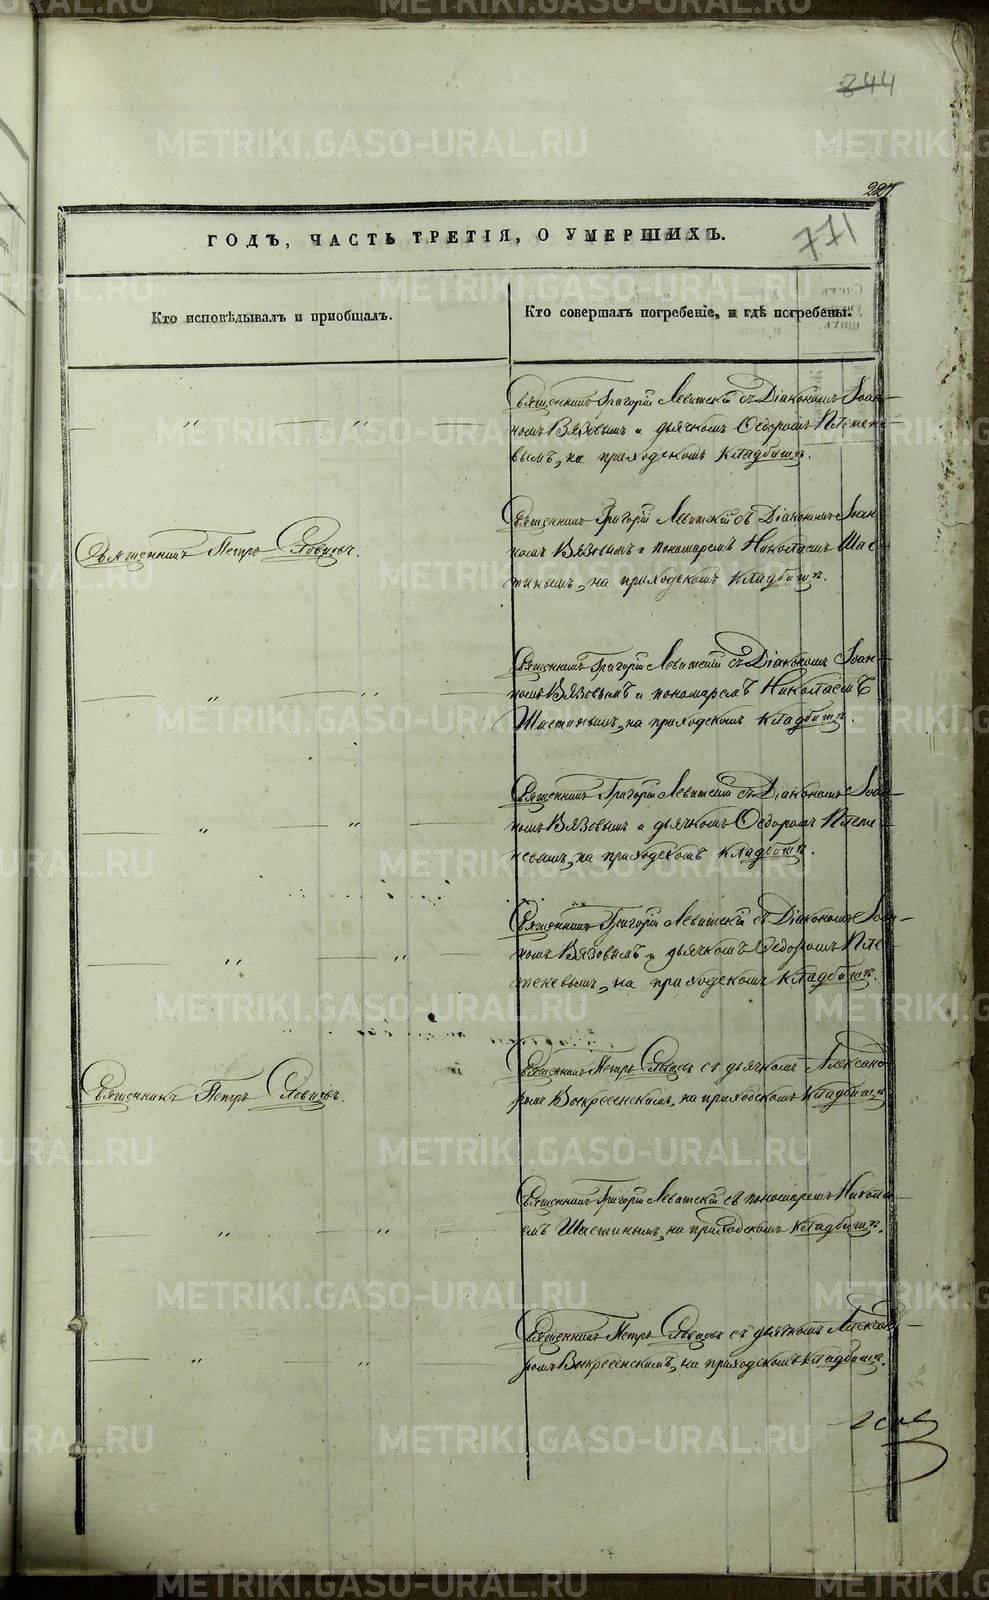 244
227
ГОДЪ, ЧАСТЬ ТРЕТІЯ, О УМЕРШИХЪ.
771
Кто исповѣдывалъ и пріобщалъ.
Кто совершалъ погребеніе, и гдѣ погребены.
Священникъ Григорій Левитскій съ Діакономъ Іоан-
номъ Вязовымъ и дьячкомъ Ѳедоромъ Плетене-
вымъ, на приходскомъ кладбищѣ.
Священникъ Петръ
Священникъ Григорій Левитскій съ Діакономъ Іоан
номъ Вязовымъ и пономаремъ Николаемъ Шас-
тинымъ, на приходскомъ кладбищѣ.
Священникъ Григорій Левитскій съ Діакономъ Іоан-
номъ Вязовымъ и пономаремъ Николаемъ
Шастинымъ, на приходскомъ кладбищѣ.
Священникъ Григорій Левитскій съ Діакономъ Іоан-
номъ Вязовымъ и дьячкомъ Ѳедоромъ Плете
невымъ, на приходскомъ кладбищѣ.
Священникъ Григорій Левитскій съ Діакономъ Іоан-
номъ Вязовымъ и дьячкомъ Ѳедоромъ Пле-
теневымъ, на приходскомъ кладбищѣ.
Священникъ Петръ
Священникъ Петръ съ дьячкомъ Александ
ромъ Воскресенскимъ, на приходскомъ кладбищѣ
Священникъ Григорій Левитскій съ пономаремъ Никола
емъ Шастинымъ, на приходскомъ кладбищѣ.
Священникъ Петръ съ дьячкомъ Александ-
ромъ Воскресенскимъ, на приходскомъ кладбищѣ.
METRIKI.GASO-URAL.RU